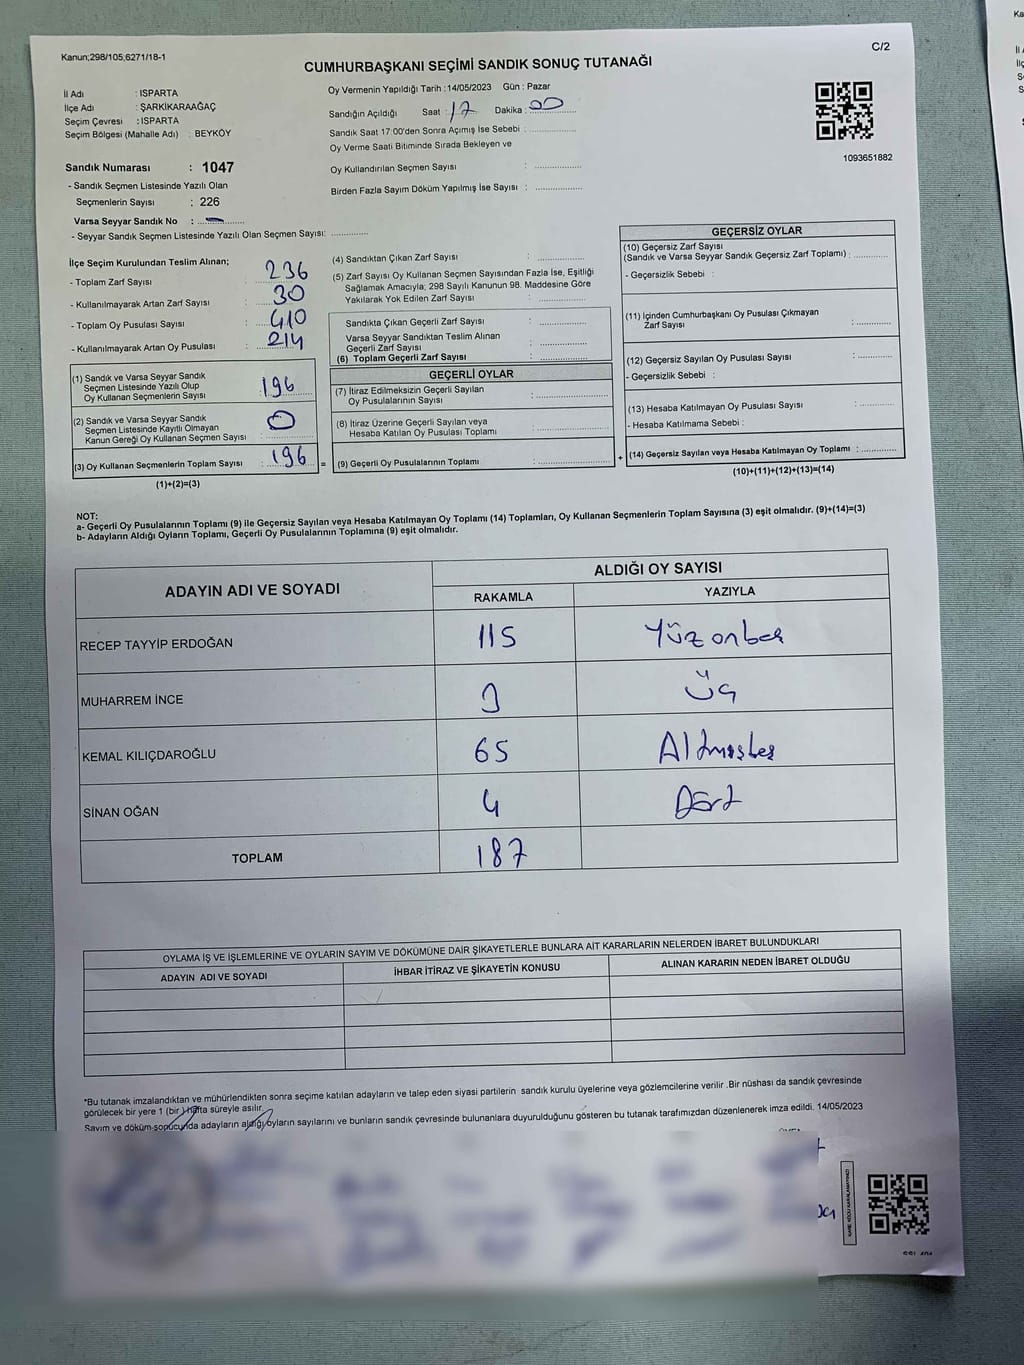 Kanun;298/105;6271/18-1
C/2
CUMHURBAŞKANI SEÇİMİ SANDIK SONUÇ TUTANAĞI
İl Adı : ISPARTA
İlçe Adı : ŞARKİKARAAĞAÇ
Seçim Çevresi : ISPARTA
Seçim Bölgesi (Mahalle Adı) : BEYKÖY
Oy Vermenin Yapıldığı Tarih : 14/05/2023 Gün : Pazar
Sandığın Açıldığı Saat : 17 Dakika : 00
Sandık Saat 17:00'den Sonra Açımış İse Sebebi :
Oy Verme Saati Bitiminde Sırada Bekleyen ve
Oy Kullandırılan Seçmen Sayısı :
Birden Fazla Sayım Döküm Yapılmış İse Sayısı :
1093651882
Sandık Numarası : 1047
- Sandık Seçmen Listesinde Yazılı Olan
Seçmenlerin Sayısı : 226
Varsa Seyyar Sandık No :
- Seyyar Sandık Seçmen Listesinde Yazılı Olan Seçmen Sayısı:
İlçe Seçim Kurulundan Teslim Alınan;
- Toplam Zarf Sayısı : 236
- Kullanılmayarak Artan Zarf Sayısı : 30
- Toplam Oy Pusulası Sayısı : 410
- Kullanılmayarak Artan Oy Pusulası : 214
(1) Sandık ve Varsa Seyyar Sandık
Seçmen Listesinde Yazılı Olup
Oy Kullanan Seçmenlerin Sayısı : 196
(2) Sandık ve Varsa Seyyar Sandık
Seçmen Listesinde Kayıtlı Olmayan
Kanun Gereği Oy Kullanan Seçmen Sayısı : 0
(3) Oy Kullanan Seçmenlerin Toplam Sayısı : 196 =
(1)+(2)=(3)
(4) Sandıktan Çıkan Zarf Sayısı :
(5) Zarf Sayısı Oy Kullanan Seçmen Sayısından Fazla İse, Eşitliği
Sağlamak Amacıyla; 298 Sayılı Kanunun 98. Maddesine Göre
Yakılarak Yok Edilen Zarf Sayısı :
Sandıkta Çıkan Geçerli Zarf Sayısı :
Varsa Seyyar Sandıktan Teslim Alınan
Geçerli Zarf Sayısı :
(6) Toplam Geçerli Zarf Sayısı :
GEÇERLİ OYLAR
(7) İtiraz Edilmeksizin Geçerli Sayılan
Oy Pusulalarının Sayısı :
(8) İtiraz Üzerine Geçerli Sayılan veya
Hesaba Katılan Oy Pusulası Toplamı :
(9) Geçerli Oy Pusulalarının Toplamı : +
GEÇERSİZ OYLAR
(10) Geçersiz Zarf Sayısı
(Sandık ve Varsa Seyyar Sandık Geçersiz Zarf Toplamı) :
- Geçersizlik Sebebi :
(11) İçinden Cumhurbaşkanı Oy Pusulası Çıkmayan
Zarf Sayısı :
(12) Geçersiz Sayılan Oy Pusulası Sayısı :
- Geçersizlik Sebebi :
(13) Hesaba Katılmayan Oy Pusulası Sayısı :
- Hesaba Katılmama Sebebi :
(14) Geçersiz Sayılan veya Hesaba Katılmayan Oy Toplamı :
(10)+(11)+(12)+(13)=(14)
NOT:
a- Geçerli Oy Pusulalarının Toplamı (9) ile Geçersiz Sayılan veya Hesaba Katılmayan Oy Toplamı (14) Toplamları, Oy Kullanan Seçmenlerin Toplam Sayısına (3) eşit olmalıdır. (9)+(14)=(3)
b- Adayların Aldığı Oyların Toplamı, Geçerli Oy Pusulalarının Toplamına (9) eşit olmalıdır.
ADAYIN ADI VE SOYADI ALDIĞI OY SAYISI
RAKAMLA YAZIYLA
RECEP TAYYİP ERDOĞAN 115 Yüzonbeş
MUHARREM İNCE 3 üç
KEMAL KILIÇDAROĞLU 65 Altmışbeş
SİNAN OĞAN 4 Dört
TOPLAM 187
OYLAMA İŞ VE İŞLEMLERİNE VE OYLARIN SAYIM VE DÖKÜMÜNE DAİR ŞİKAYETLERLE BUNLARA AİT KARARLARIN NELERDEN İBARET BULUNDUKLARI
ADAYIN ADI VE SOYADI İHBAR İTİRAZ VE ŞİKAYETİN KONUSU ALINAN KARARIN NEDEN İBARET OLDUĞU
*Bu tutanak imzalandıktan ve mühürlendikten sonra seçime katılan adayların ve talep eden siyasi partilerin sandık kurulu üyelerine veya gözlemcilerine verilir .Bir nüshası da sandık çevresinde
görülecek bir yere 1 (bir ) hafta süreyle asılır.
Sayım ve döküm sonucunda adayların aldığı oyların sayılarını ve bunların sandık çevresinde bulunanlara duyurulduğunu gösteren bu tutanak tarafımızdan düzenlenerek imza edildi. 14/05/2023